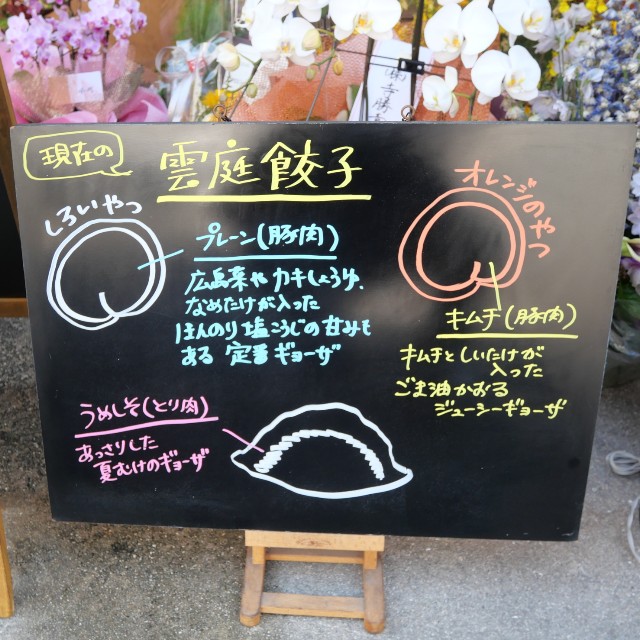 現在の
雲庭餃子
しろいやつ
プレーン(豚肉)
広島菜や カキしょうゆ、
なめたけが入った
ほんのり塩こうじの甘みも
ある 定番ギョーザ
オレンジのやつ
キムチ(豚肉)
キムチとしいたけが
入った
ごま油かおる
ジューシーギョーザ
うめしそ(とり肉)
あっさりした
夏むけのギョーザ